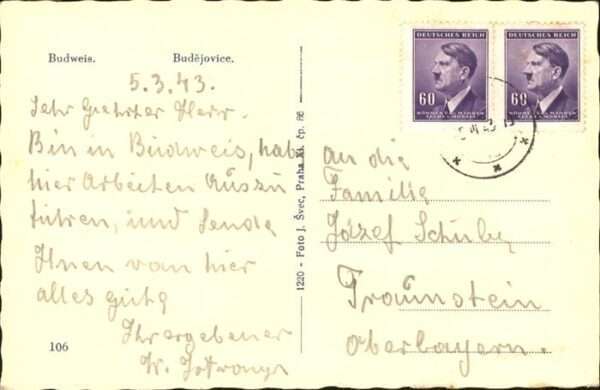 Budweis. Budějovice.
5.3.43.
Sehr Geehrter Herr.
Bin in Budweis, habe
hier Arbeiten Auszu
führen, und Sende
Ihnen von hier
alles gute
Ihr ergebener
106
1220 - Foto J. Švec, Praha XI. čp. 86
DEUTSCHES REICH
60
BÖHMEN U. MÄHREN
ČECHY A MORAVA
DEUTSCHES REICH
60
BÖHMEN U. MÄHREN
ČECHY A MORAVA
an die
Familie
Josef
Traunstein
Oberbayern.